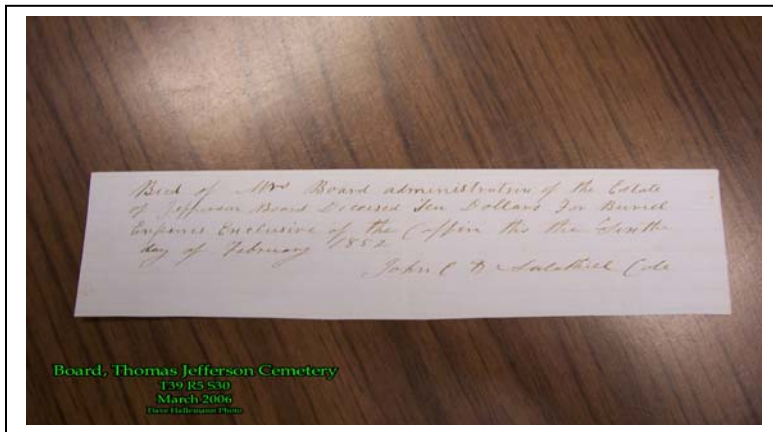 Recd of Mrs Board administratrix of the Estate
of Jefferson Board Deceised Ten Dollars For Buriel
Expences Exclusive of the Coffin this the
day of February 1852
John C Cole
Board, Thomas Jefferson Cemetery
T39 R5 S30
March 2006
Dave Hallemann Photo